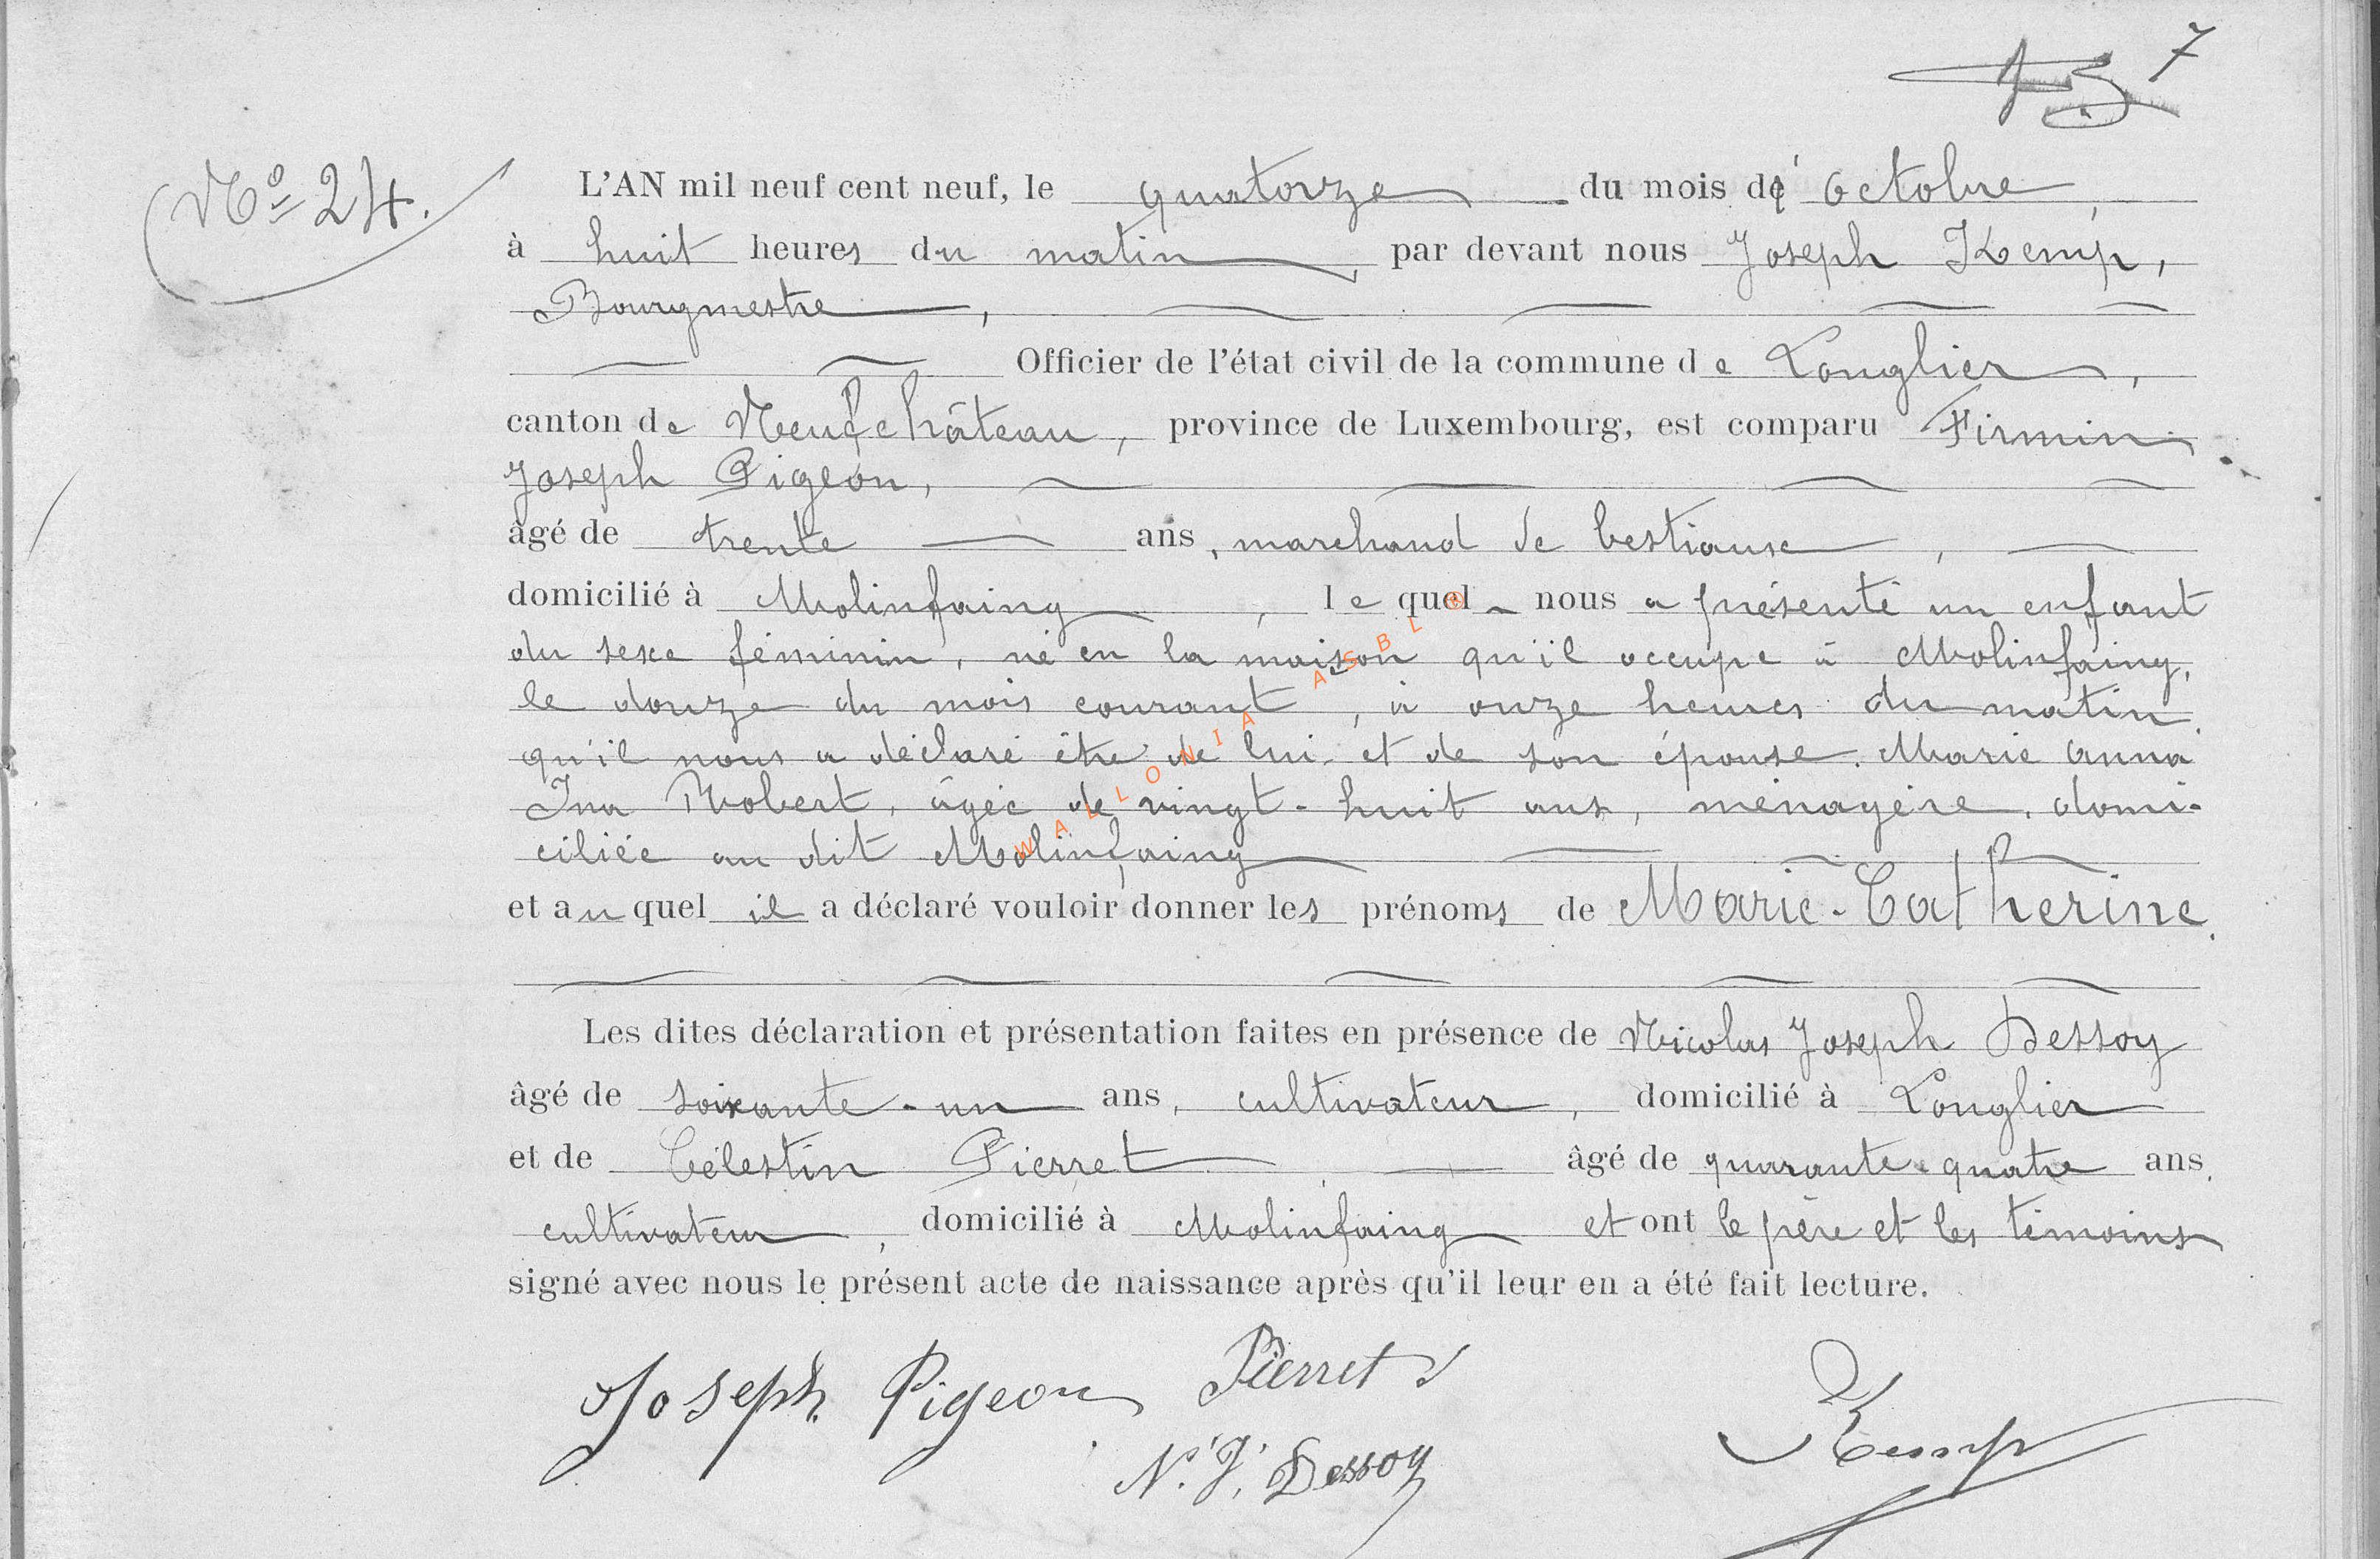 7
Nº 24.
L'AN mil neuf cent neuf, le quatorze du mois d'octobre,
à huit heures du matin, par devant nous Joseph Kemp,
Bourgmestre,
Officier de l'état civil de la commune de Longlier,
canton de Neufchâteau, province de Luxembourg, est comparu Firmin
Joseph Pigeon,
âgé de trente ans, marchand de bestiaux,
domicilié à Molinfaing, lequel nous a présenté un enfant
du sexe féminin, né en la maison qu'il occupe à Molinfaing,
le douze du mois courant, à onze heures du matin,
qu'il nous a déclaré être de lui et de son épouse, Marie Anna
Ina Robert, âgée de vingt-huit ans, ménagère, domi-
ciliée au dit Molinfaing
et auquel il a déclaré vouloir donner les prénoms de Marie-Catherine.
Les dites déclaration et présentation faites en présence de Nicolas Joseph Dessoy
âgé de soixante-un ans, cultivateur, domicilié à Longlier
et de Célestin Pierret, âgé de quarante-quatre ans,
cultivateur, domicilié à Molinfaing et ont le père et les témoins
signé avec nous le présent acte de naissance après qu'il leur en a été fait lecture.
Joseph Pigeon Pierret
N. J. Dessoy Kemp
WALLONIA ASBL ©